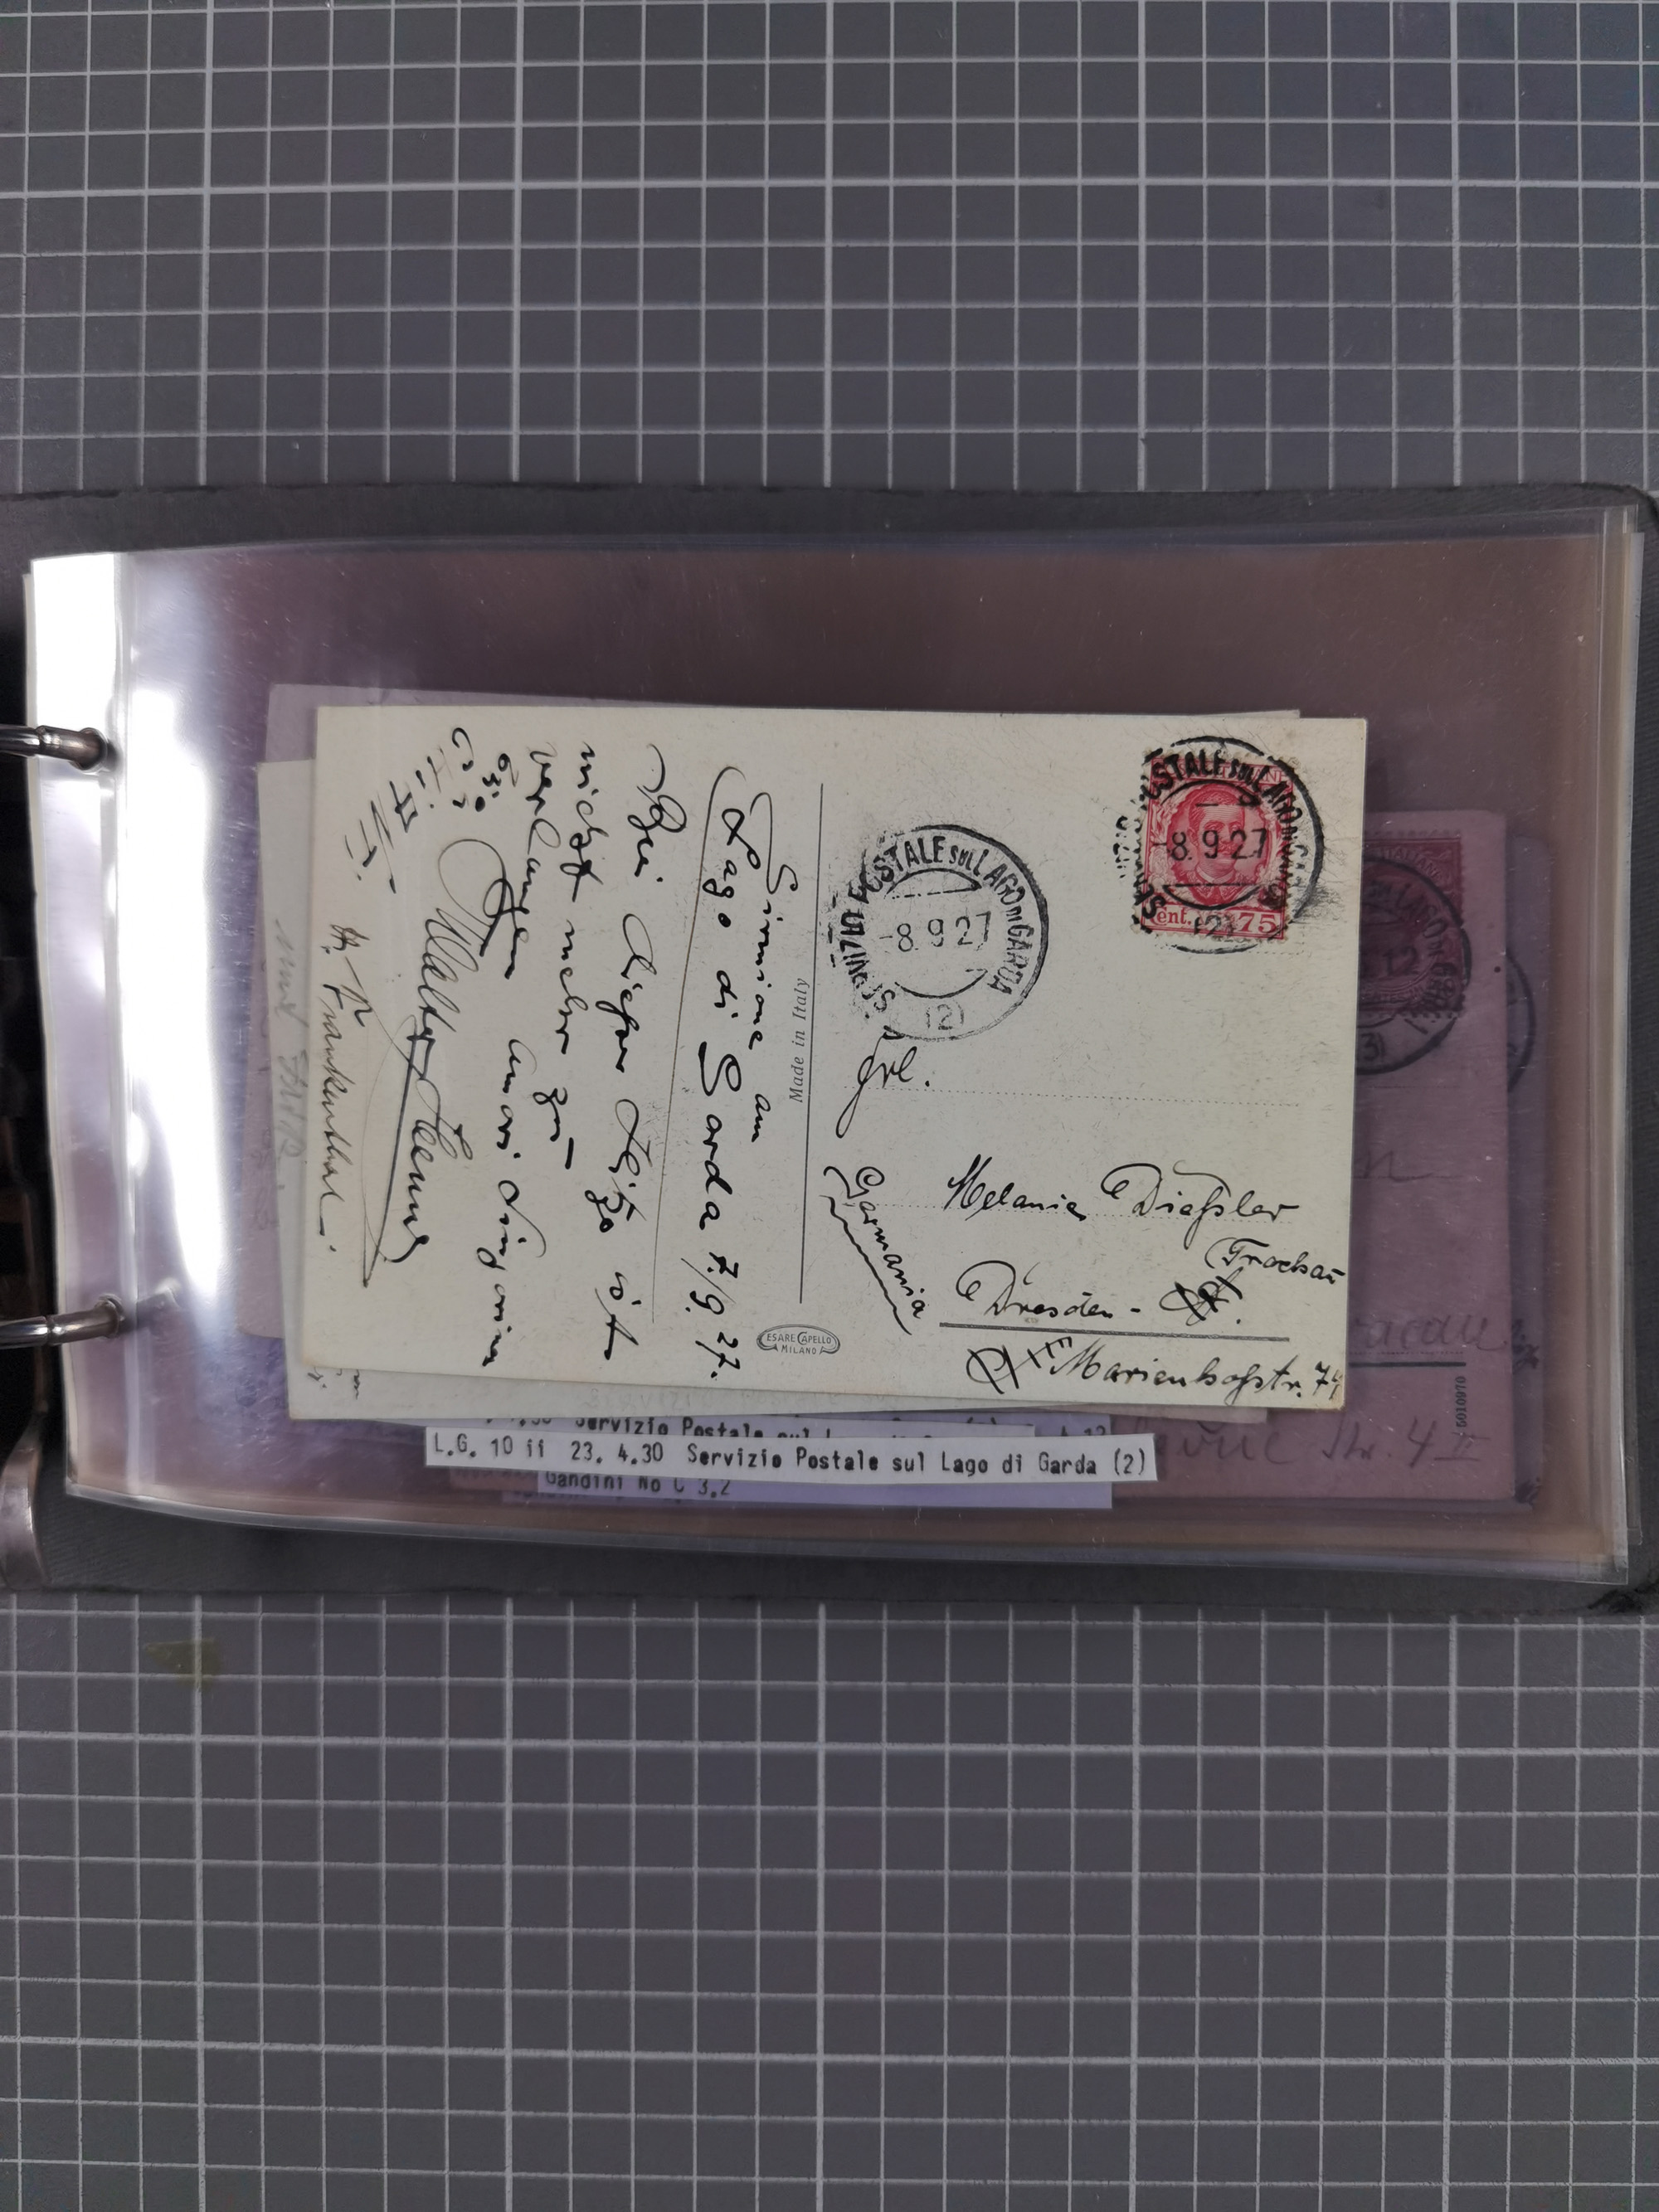 Sirmione am
Lago di Garda 7./9.27.
Bei dieser Hitze ist
nicht mehr zu
verlangen
Walter
Frankenthal.
Made in Italy
CESARE CAPELLO
MILANO
SERVIZIO POSTALE SUL LAGO DI GARDA
-8.9.27
(2)
SERVIZIO POSTALE SUL LAGO DI GARDA
-8.9.27
(2)
Cent. 75
Frl.
Melanie Dießler
Germania
(Trachau
Dresden-
Marienhofstr. 74
L.G. 10 ii 23. 4.30 Servizio Postale sul Lago di Garda (2)
Servizio Postale sul
Gandini No C 3.2
Str. 4 II
6010970